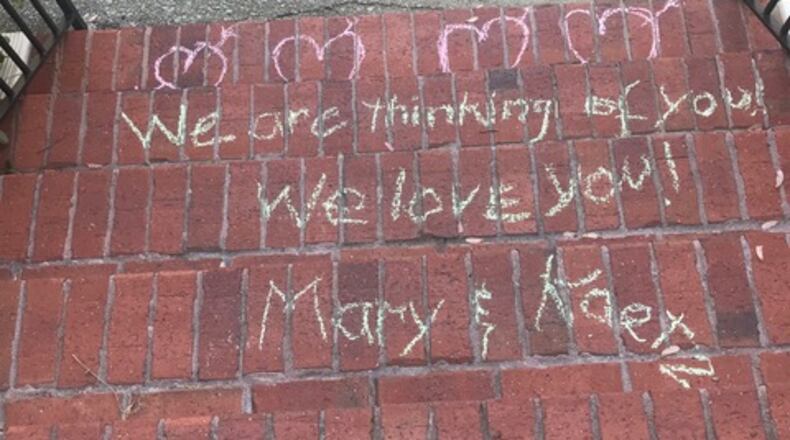 We are thinking of you!
We love you!
Mary &